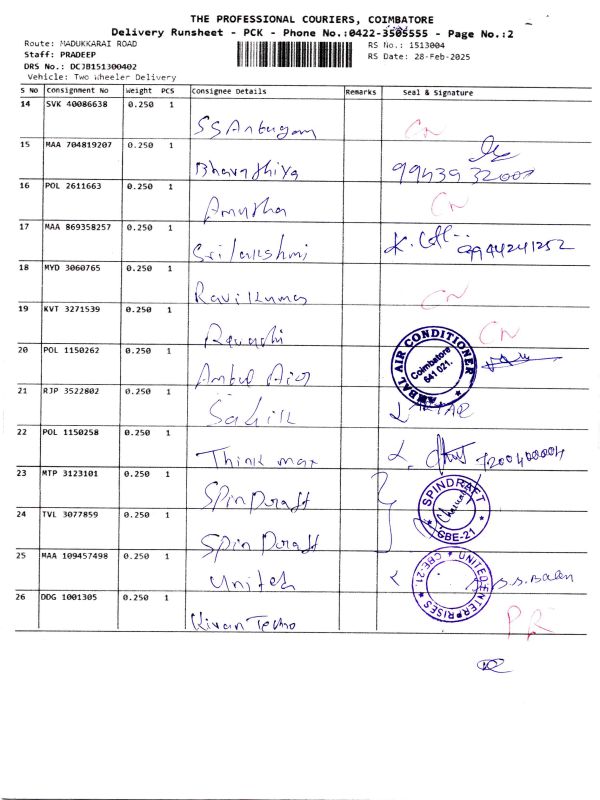 THE PROFESSIONAL COURIERS, COIMBATORE
Delivery Runsheet - PCK - Phone No.:0422-3505555 - Page No.:2
Route: MADUKKARAI ROAD
RS No.: 1513004
Staff: PRADEEP
RS Date: 28-Feb-2025
DRS No.: DCJB151300402
Vehicle: Two Wheeler Delivery
S No Consignment No Weight PCS Consignee Details Remarks Seal & Signature
14 SVK 40086638 0.250 1
SSArbugam CN
15 MAA 704819207 0.250 1
Bharathiya 9943932007
16 POL 2611663 0.250 1
Amutha CN
17 MAA 869358257 0.250 1
Srilakshmi 9944241252
18 MYD 3060765 0.250 1
Ravikumar CN
19 KVT 3271539 0.250 1
Revathi CN
20 POL 1150262 0.250 1
Ambal Air
AMBAL AIR CONDITIONER
Coimbatore
641 021.
21 RJP 3522802 0.250 1
22 POL 1150258 0.250 1
Think max
23 MTP 3123101 0.250 1
Spin Draft
SPINDRAFT
CBE-21
24 TVL 3077859 0.250 1
Spin Draft
25 MAA 109457498 0.250 1
United
UNITED ENTERPRISES
CBE-21.
S.S. Balan
26 DDG 1001305 0.250 1
Kiran Techno PR